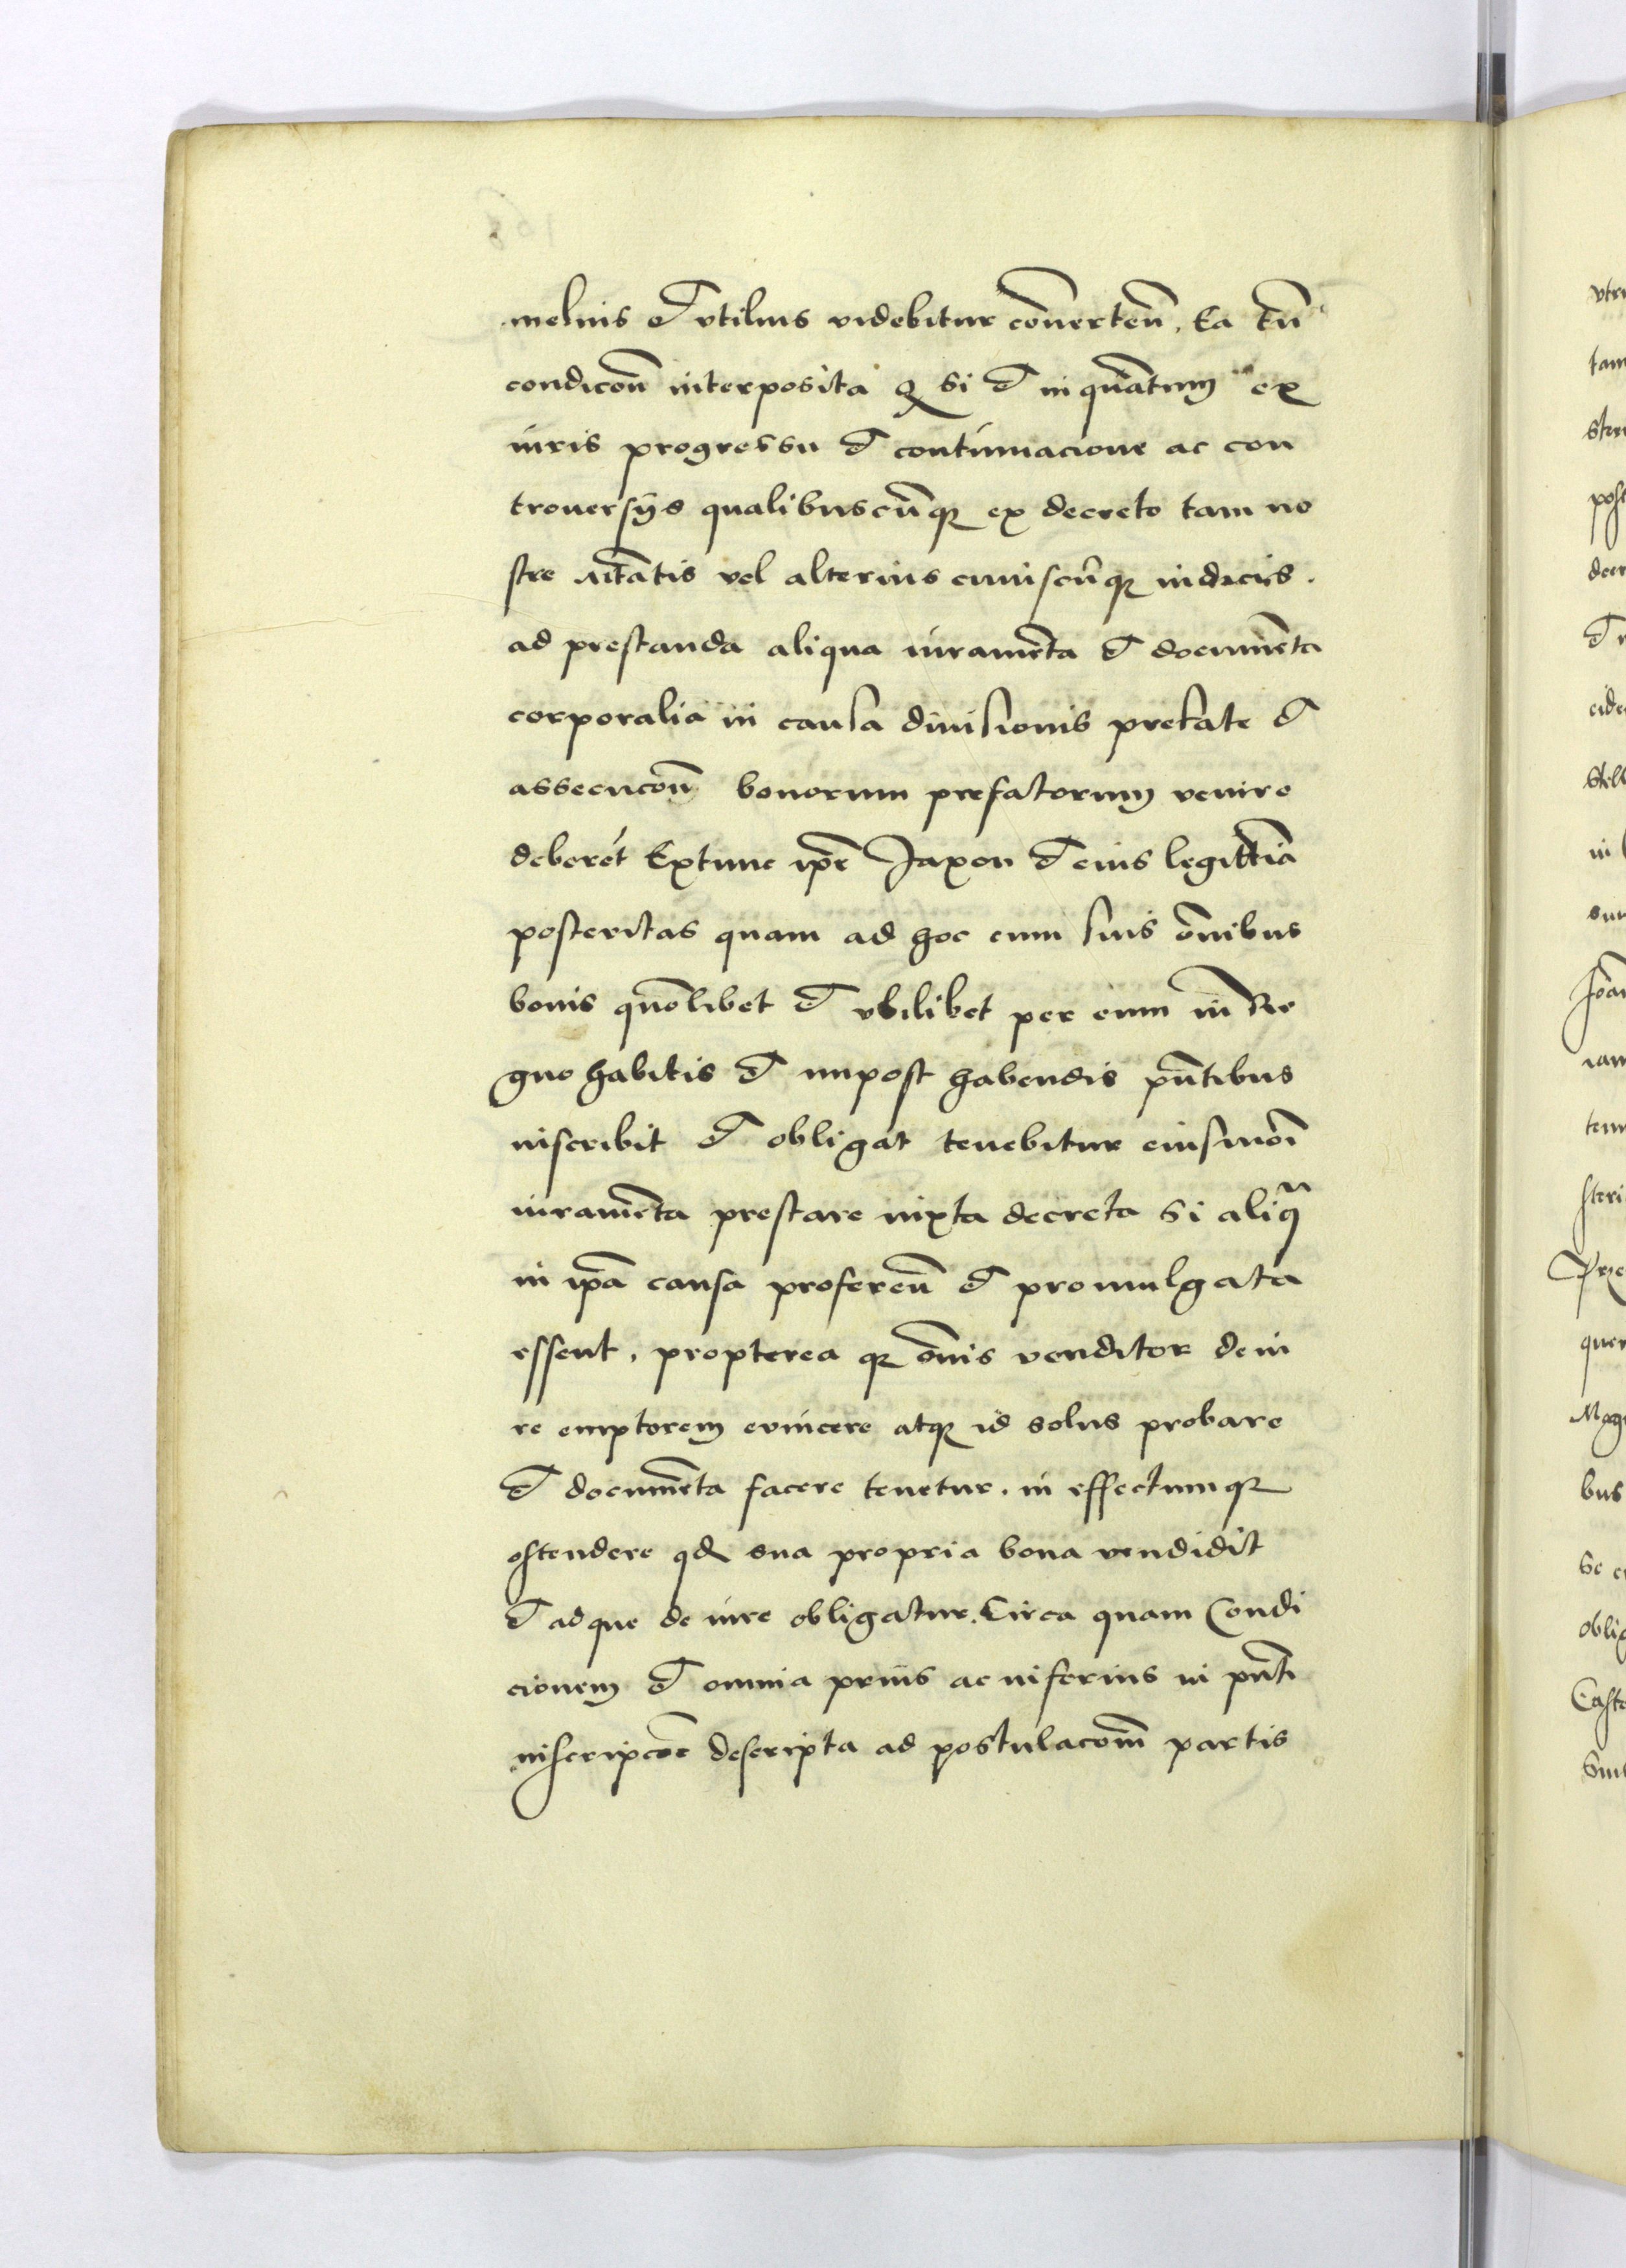 melius et vtilius videbitur cōuerteñ. Ea tñ
condicoñ interposita q̃ si et in quātum ex
iuris progressu et continuacione ac con
trouersijs qualibuscūq̃ ex decreto tam no
stre vel alterius cuiuscūq̃ iudicis.
ad prestanda aliqua iuramēta et documēta
corporalia in causa diuisionis prefate et
assecucoñ bonorum prefatorum venire
deberēt Extunc ip̄e Jaxon et eius legittīa
posteritas quam ad hoc cum suis ōnibus
bonis quōlibet et vbilibet per eum in Re
gno habitis et inpost habendis pñtibus
inscribit et obligat tenebitur eiusmōi
iuramēta prestare iuxta decreta si aliqᵃ
in ip̄a causa profereñ et promulgata
essent, propterea q̃ ōnis venditor de iu
re emptorem euincere atq̃ id solus probare
et documēta facere tenetur. in effectumq̃
ostendere qd sua propria bona vendidit
et ad que de iure obligatur. Circa quam Condi
cionem et omnia prius ac inferius in pñti
inscripcōe descripta ad postulacōm partis
vtr
tam
post
decr
et
eide
stell
in
sun
Joan
iam
ten
steri
Prze
quer
Mag
bus
se
oblig
Caste